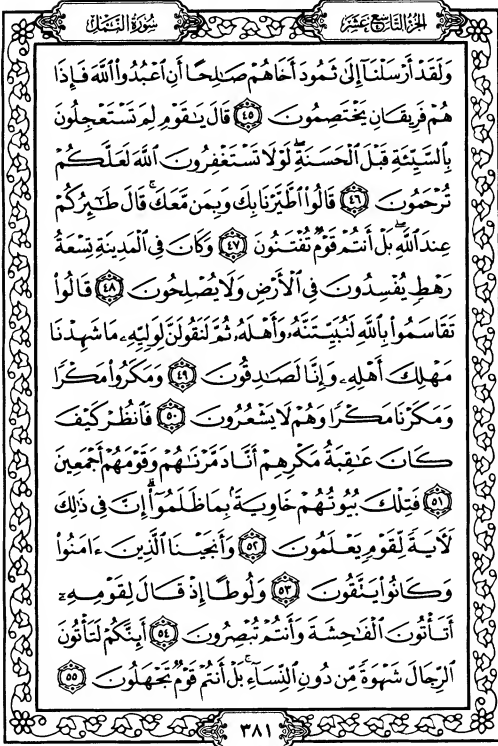 الجزء التاسع عشر
سورة النمل
وَلَقَدْ أَرْسَلْنَآ إِلَىٰ ثَمُودَ أَخَاهُمْ صَـٰلِحًا أَنِ ٱعْبُدُواْ ٱللَّهَ فَإِذَا
هُمْ فَرِيقَانِ يَخْتَصِمُونَ ٤٥ قَالَ يَـٰقَوْمِ لِمَ تَسْتَعْجِلُونَ
بِٱلسَّيِّئَةِ قَبْلَ ٱلْحَسَنَةِ ۖ لَوْلَا تَسْتَغْفِرُونَ ٱللَّهَ لَعَلَّكُمْ
تُرْحَمُونَ ٤٦ قَالُواْ ٱطَّيَّرْنَا بِكَ وَبِمَن مَّعَكَ ۚ قَالَ طَـٰٓئِرُكُمْ
عِندَ ٱللَّهِ ۖ بَلْ أَنتُمْ قَوْمٌ تُفْتَنُونَ ٤٧ وَكَانَ فِى ٱلْمَدِينَةِ تِسْعَةُ
رَهْطٍ يُفْسِدُونَ فِى ٱلْأَرْضِ وَلَا يُصْلِحُونَ ٤٨ قَالُواْ
تَقَاسَمُواْ بِٱللَّهِ لَنُبَيِّتَنَّهُۥ وَأَهْلَهُۥ ثُمَّ لَنَقُولَنَّ لِوَلِيِّهِۦ مَا شَهِدْنَا
مَهْلِكَ أَهْلِهِۦ وَإِنَّا لَصَـٰدِقُونَ ٤٩ وَمَكَرُواْ مَكْرًا
وَمَكَرْنَا مَكْرًا وَهُمْ لَا يَشْعُرُونَ ٥٠ فَٱنظُرْ كَيْفَ
كَانَ عَـٰقِبَةُ مَكْرِهِمْ أَنَّا دَمَّرْنَـٰهُمْ وَقَوْمَهُمْ أَجْمَعِينَ
٥١ فَتِلْكَ بُيُوتُهُمْ خَاوِيَةًۢ بِمَا ظَلَمُوٓاْ ۗ إِنَّ فِى ذَٰلِكَ
لَـَٔايَةً لِّقَوْمٍ يَعْلَمُونَ ٥٢ وَأَنجَيْنَا ٱلَّذِينَ ءَامَنُواْ
وَكَانُواْ يَتَّقُونَ ٥٣ وَلُوطًا إِذْ قَالَ لِقَوْمِهِۦٓ
أَتَأْتُونَ ٱلْفَـٰحِشَةَ وَأَنتُمْ تُبْصِرُونَ ٥٤ أَئِنَّكُمْ لَتَأْتُونَ
ٱلرِّجَالَ شَهْوَةً مِّن دُونِ ٱلنِّسَآءِ ۚ بَلْ أَنتُمْ قَوْمٌ تَجْهَلُونَ ٥٥
٣٨١